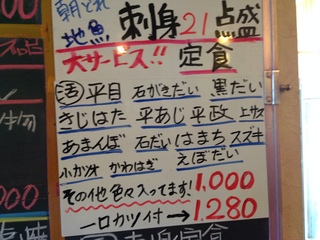 朝どれ
地魚 刺身21点盛
大サービス!! 定食
活 平目 石がきだい 黒だい
きじはた 平あじ 平政 上サス
あまんぼ 石だい はまち スズキ
小カツオ かわはぎ えぼだい
その他色々入ってます! 1,000
一口カツ付→1,280